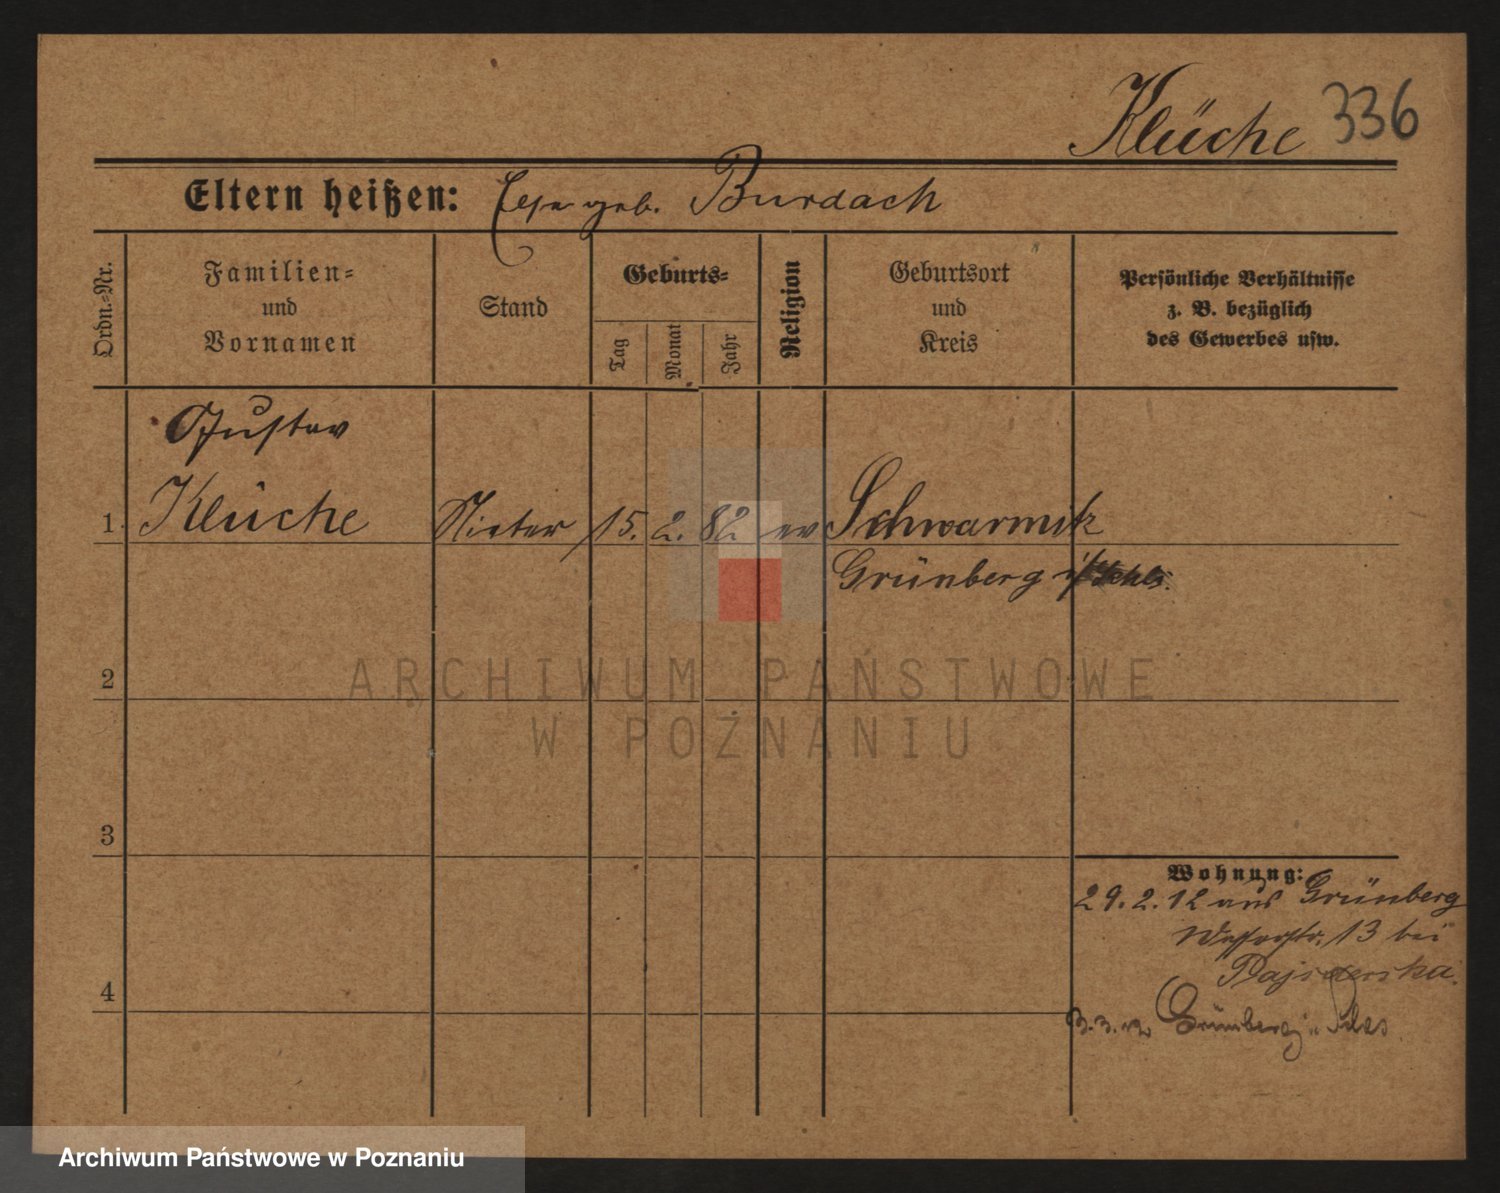 Klüche 336
Eltern heißen: geb. Burdach
Ordn.-Nr.
Familien-
und
Vornamen
Stand
Geburts-
Tag
Monat
Jahr
Religion
Geburtsort
und
Kreis
Persönliche Verhältnisse
z. B. bezüglich
des Gewerbes usw.
Gustav
1 Klüche Nieter 15. 2. 82 ev Schwarmitz
Grünberg i/Schls.
2
ARCHIWUM PAŃSTWOWE
W POZNANIU
3
Wohnung:
29. 2. 12 aus Grünberg
13 bei
4
3. 3. 12 Grünberg
Archiwum Państwowe w Poznaniu